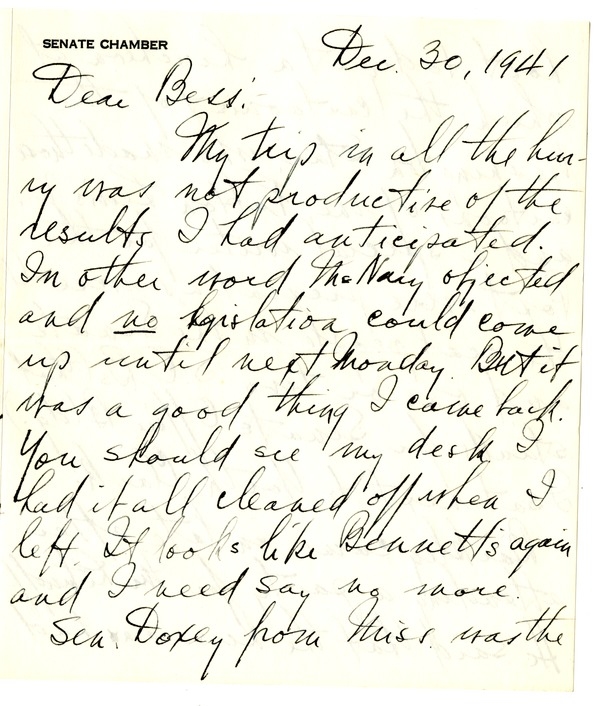 SENATE CHAMBER
Dec. 30, 1941
Dear Bess:-
My trip in all the hur-
ry was not productive of the
results I had anticipated.
In other word McNary objected
and no legislation could come
up until next Monday. But it
was a good thing I came back.
You should see my desk I
had it all cleaned off when I
left. It looks like Bennett's again
and I need say no more.
Sen. Doxey from Miss. was the